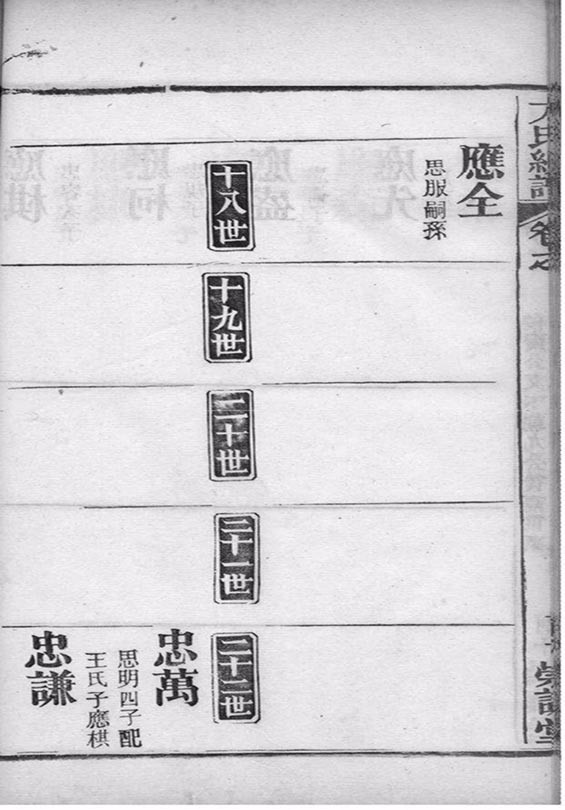 應全
思服嗣孫
十八世
十九世
二十世
二十一世
二十二世
忠萬
思明四子配
王氏子應棋
忠謙